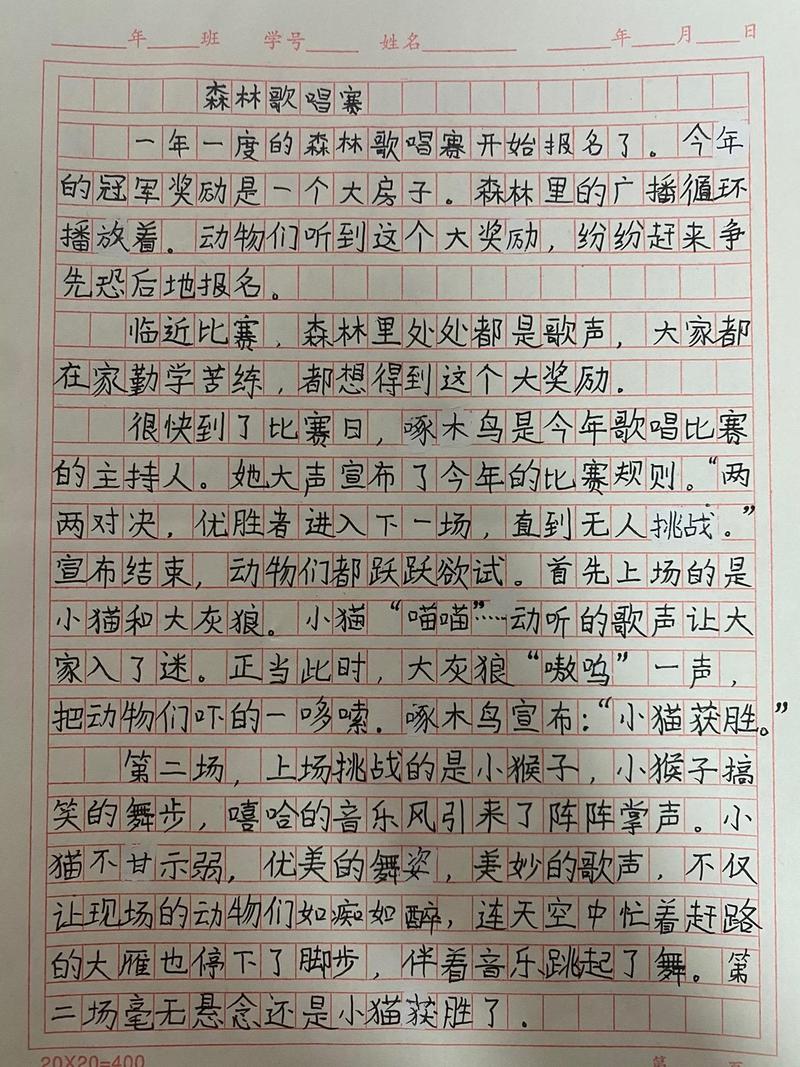 年 班 学号 姓名 年 月 日
森林歌唱赛
一年一度的森林歌唱赛开始报名了。今年
的冠军奖励是一个大房子。森林里的广播循环
播放着。动物们听到这个大奖励，纷纷赶来争
先恐后地报名。
临近比赛，森林里处处都是歌声，大家都
在家勤学苦练，都想得到这个大奖励.
很快到了比赛日，啄木鸟是今年歌唱比赛
的主持人。她大声宣布了今年的比赛规则。“两
两对决，优胜者进入下一场，直到无人挑战。”
宣布结束，动物们都跃跃欲试。首先上场的是
小猫和大灰狼。小猫“喵喵”……动听的歌声让大
家入了迷。正当此时，大灰狼“嗷呜”一声，
把动物们吓的一哆嗦.啄木鸟宣布：“小猫获胜。”
第二场，上场挑战的是小猴子，小猴子搞
笑的舞步，嘻哈的音乐风引来了阵阵掌声。小
猫不甘示弱，优美的舞姿，美妙的歌声，不仅
让现场的动物们如痴如醉，连天空中忙着赶路
的大雁也停下了脚步，伴着音乐跳起了舞。第
二场毫无悬念还是小猫获胜了.
20X20=400 第 页